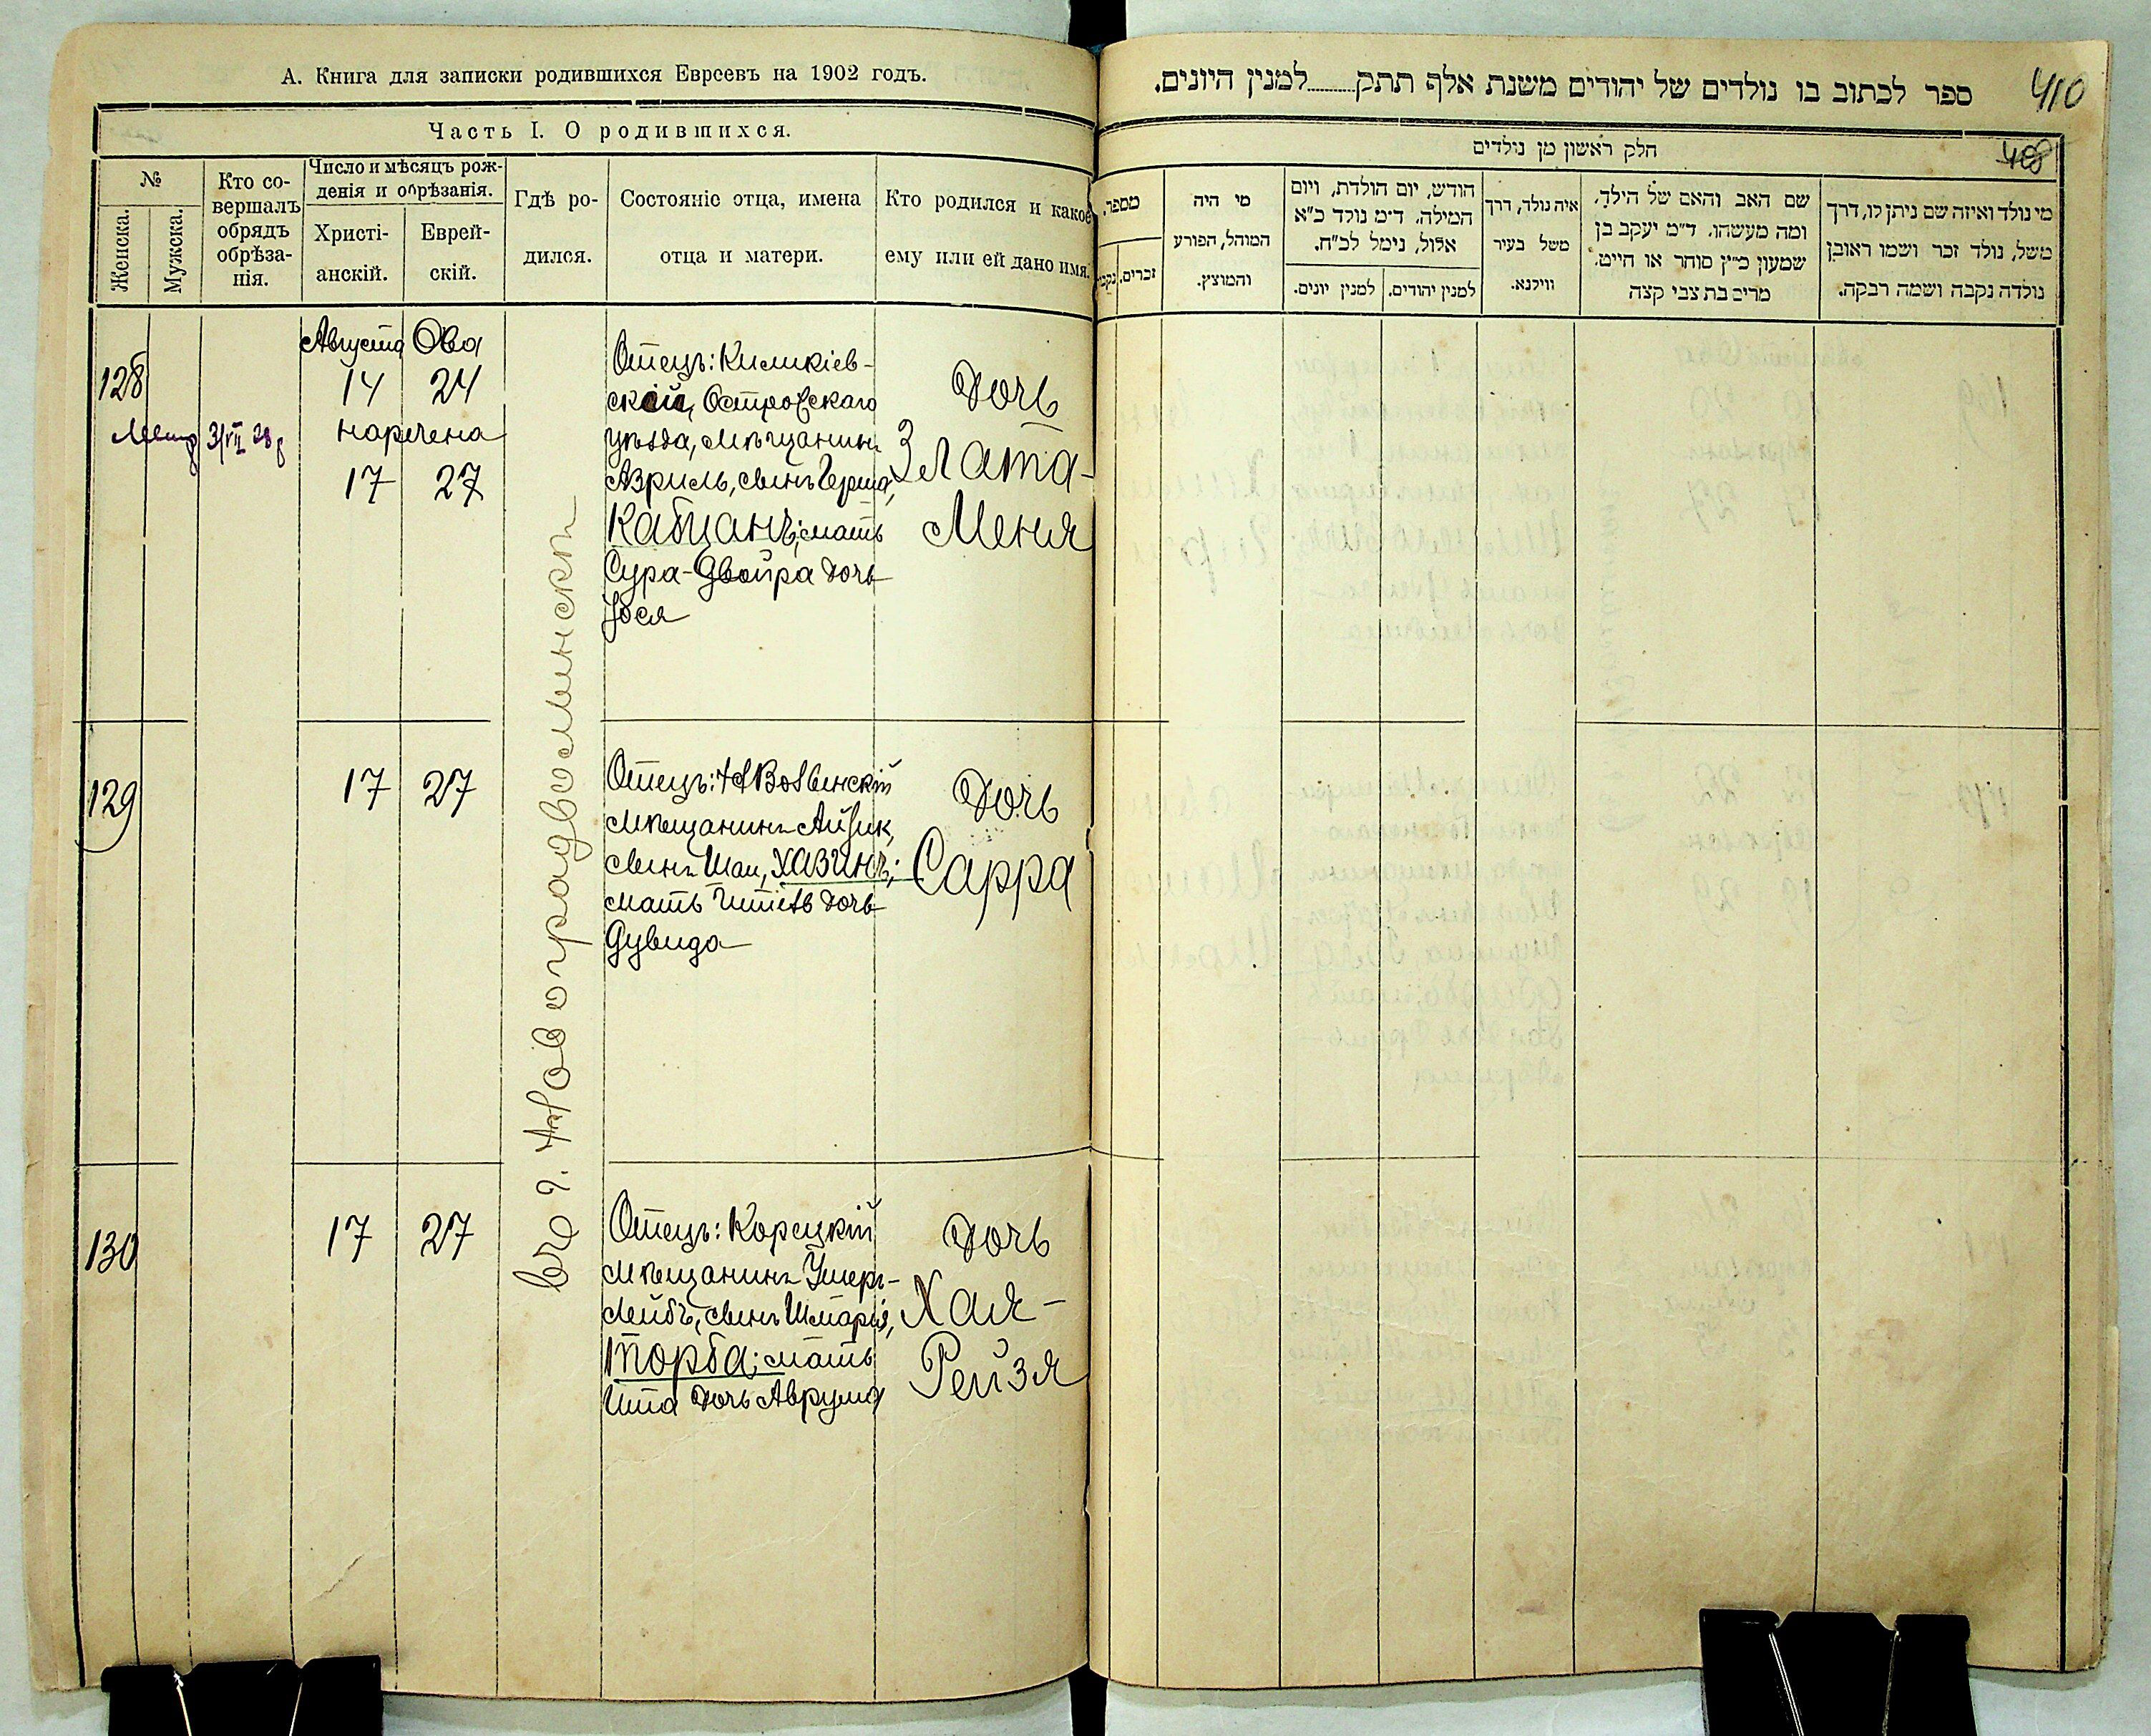 А. Книга для записки родившихся Евреевъ на 1902 годъ.
Часть I. О родившихся.
№
Женска.
Мужска.
Кто со-
вершалъ
обрядъ
обрѣза-
нія.
Число и мѣсяцъ рож-
денія и обрѣзанія.
Христі-
анскій.
Еврей-
скій.
Гдѣ ро-
дился.
Состояніе отца, имена
отца и матери.
Кто родился и какое
ему или ей дано имя.
128
Августа
14
наречена
17
Ова
24
27
Отецъ: Киликіев-
скій, Островскаго
уѣзда, мѣщанинъ
Азриль, сынъ Герша,
Кабцанъ; мать
Сура-Двойра дочь
Іося
дочь
Злата-
Меня
въ г. Новоградволынскѣ
129
17
27
Отецъ: Н Волынскій
мѣщанинъ Айзик,
сынъ Шаи, Хазинъ;
мать дочь
Дувида
дочь
Сарра
130
17
27
Отецъ: Корецкій
мѣщанинъ Ушеръ-
Лейбъ, сынъ Шмарія,
Торба; мать
Ита дочь Аврума
дочь
Хая-
Рейзя
410
408
ספר לכתוב בו נולדים של יהודים משנת אלף תתק........למנין היונים.
חלק ראשון מן נולדים
מספר.
זכרים.
נקבות
מי היה
המוהל, הפורע
והמוצץ.
חודש, יום הולדת, ויום
המילה. ד״מ נולד כ״א
אלול, נימל לכ״ח.
למנין יונים.
למנין יהודים.
איה נולד, דרך
משל בעיר
ווילנא.
שם האב והאם של הילד,
ומה מעשהו. ד״מ יעקב בן
שמעון כ״ץ סוחר או חייט.
מרים בת צבי קצה
מי נולד ואיזה שם ניתן לו, דרך
משל, נולד זכר ושמו ראובן
נולדה נקבה ושמה רבקה.